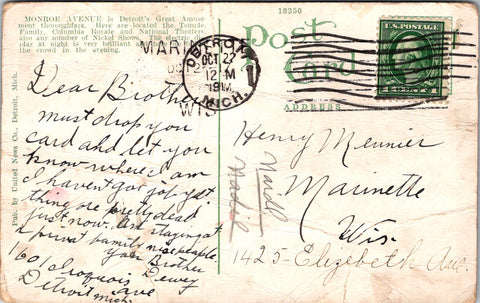 MONROE AVENUE is Detroit's Great Amuse-
ment thoroughfare. Here are located the Temple,
Family, Columbia Royale and National Theatres,
also any number of Nickel Shows. The electric dis-
play at night is very brilliant and
the crowd in the evening.
18350
Post
Card
ADDRESS
MARIN
WIS
DETROIT,
OCT 27
12 M
191
MICH.
1
Pub. by United News Co., Detroit, Mich.
Dear Brother
must drop you
card and let you
know where I am
I havent got job yet
thing are pretty dead
just now. am staying at
a privat family nice people
your Brother
Dewey
1601 Iroquois Ave
Detroit Mich.
Henry Meunier
Marinette
Wis.
1425-Elizebeth Ave.